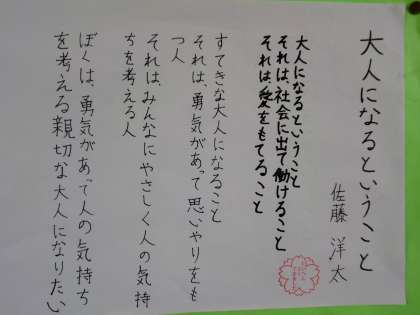 大人になるということ
佐藤 洋太
大人になるということ
それは、社会に出て働けること
それは、愛をもてること
すてきな大人になること
それは、勇気があって思いやりをも
つ人
それは、みんなにやさしく人の気持
ちを考える人
ぼくは、勇気があって人の気持ち
を考える親切な大人になりたい